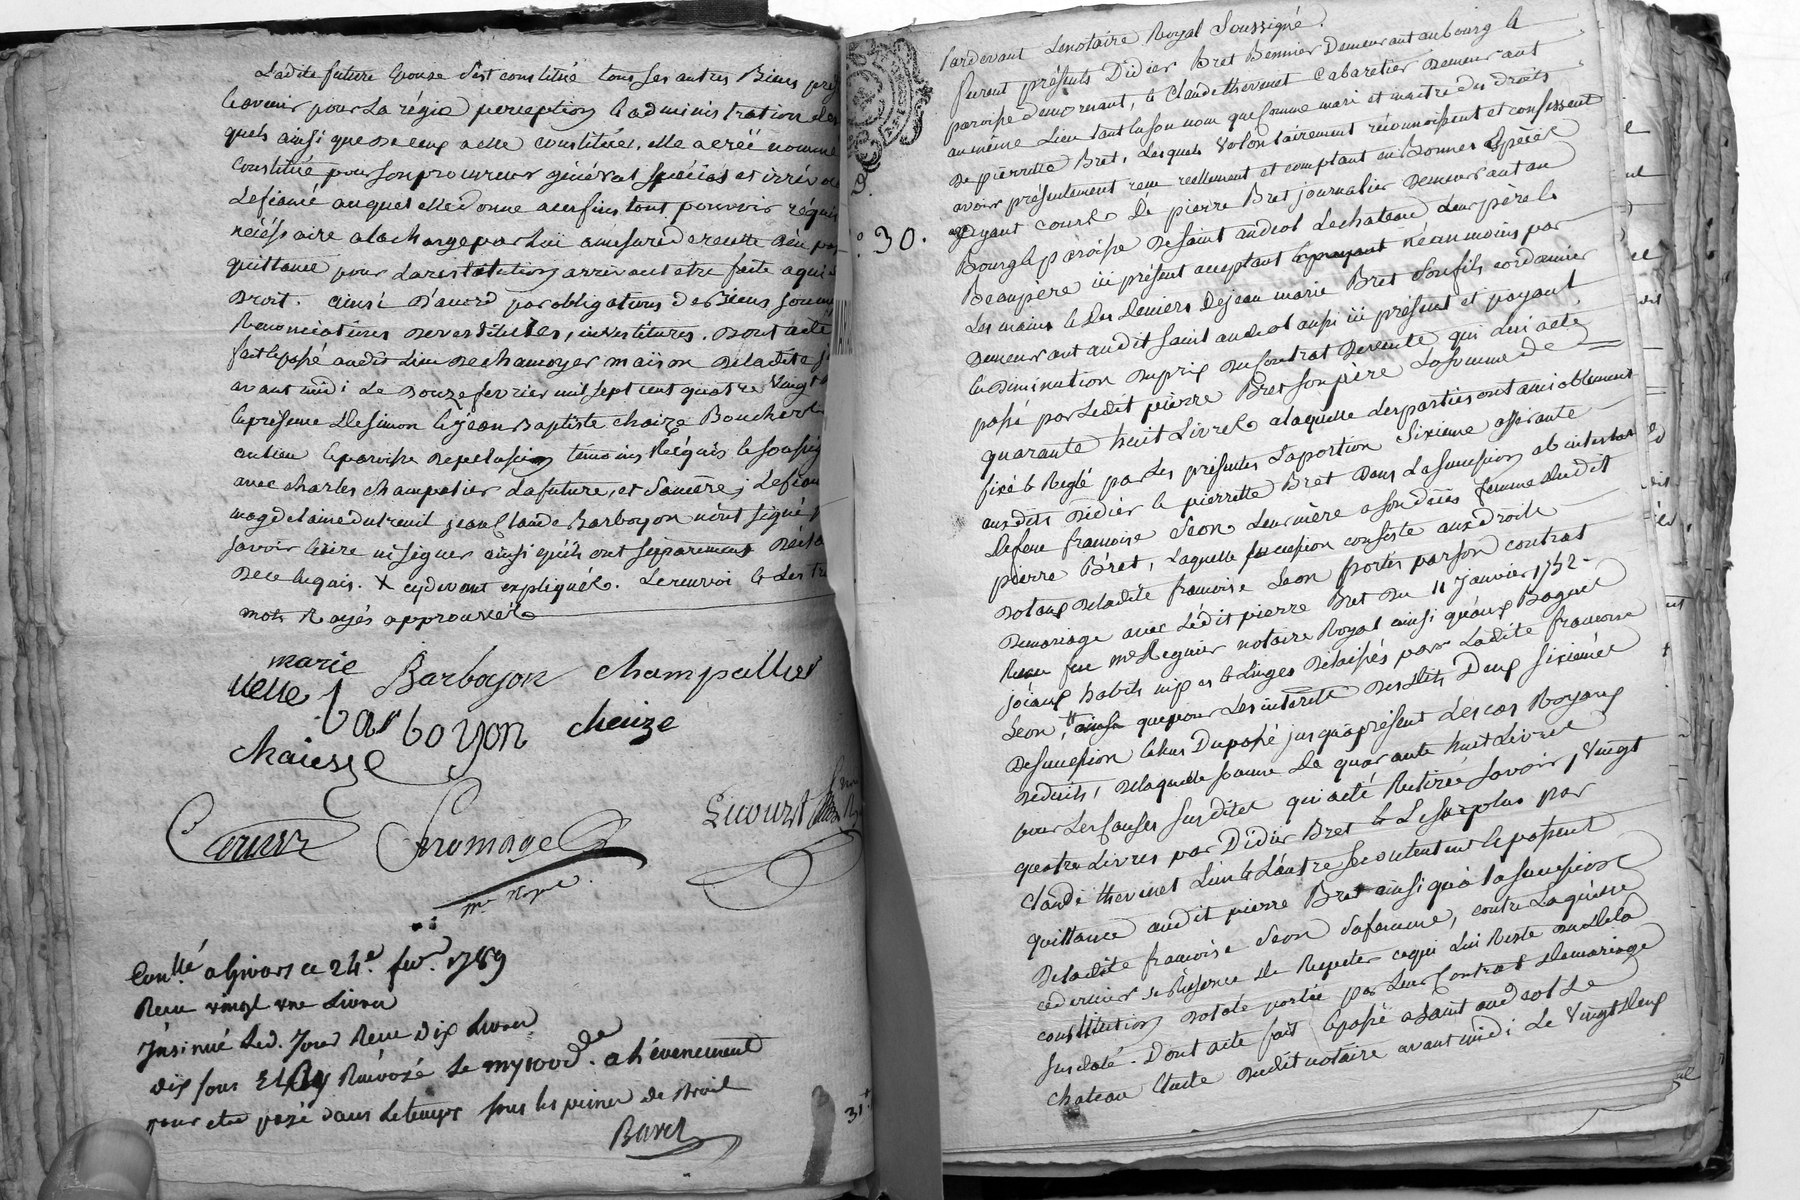 Ladite future Epouse s'est constituée tous ses autres Biens pres
& avenir pour La régie perception & administration des
quels ainsi que de ceux a elle constitués, elle a créé nommé
Constitué pour son procureur général spécial et irrévoc
Le fiancé auquel elle donne aux fins tout pouvoir réquis
nécéssaire a la charge par Lui a mesure de recette d'en pas
quittance pour La restitution arrivant etre faite a qui de
Droit. ainsi D'accord par obligations de Biens soumi
Renonciations investitures. Dont acte
fait & passé audit Lieu de chamoyer maison de ladite f
avant midi Le Douze fevrier mil sept cent quatre vingt n
En présence De simon & jean Baptiste chaize Boucher
au lieu & paroisse de pelussin témoins Réquis & soussig
avec charles champalier La future, et Sa mère; Le fian
magdelaine dutreuil jean Claude Barboyon n'ont signé p
sçavoir écrire ni signer ainsi qu'ils ont séparement Décla
De ce enquis. X cy devant expliqués. Le renvoi & Les tr
mots Rayés approuvés
marie Barboyon champallier
Barboyon cheize
chaiesze
Fromage
No. Royal
Conllé a Givors ce 24e. fevr. 1789
Reçu vingt une Livres
Insinué Led. Jour Reçu Dix Livres
dix sous Et Réservé Le a L'évenement
pour etre payé dans Le temps sous les peines de droit
Barel
31
30.
Pardevant Le notaire Royal Soussigné.
furent présents Didier Bret Bennier Demeurant au bourg &
paroisse demornant, & Claude thevenet Cabaretier Demeurant
au même Lieu tant en son nom que comme mari et maitre des Droits
De pierrette Bret, Lesquels volontairement réconnoissent et confessent
avoir présentement reçu réellement et comptant en Bonnes Espèces
ayant cours De pierre Bret journalier Demeurant au
Bourg & paroisse De saint andeol Lechateau Leur père &
Beaupère ici présent acceptant & payant néanmoins par
Les mains & des Deniers De jean marie Bret son fils cordonnier
Demeurant audit saint andeol aussi ici présent et payant
en Diminution du prix du Contrat De vente qui Lui a été
passé par Ledit pierre Bret son père La somme de
quarante huit Livres a laquelle Les parties ont amiablement
fixé & Reglé par Les présentes La portion Sixieme afférante
auxdits Didier & pierrette Bret dans La succession ab intestat
De feue francoise Seon Leur mère a son décès femme dudit
pierre Bret, Laquelle succession consiste aux droits
Dotaux De ladite francoise Seon portés par son contrat
De mariage avec Lédit pierre Bret du 11 janvier 1752 -
Reçu feu me Regnier notaire Royal ainsi qu'aux Bagues
joiaux habits nipes & Linges Delaissés par Ladite francoise
Seon, que pour Les interets desdits Deux sixiemes
De succession échus Du passé jusqu'a présent Les cas Royaux
Déduits, De laquelle somme De quarante huit Livres
pour Les causes susdites qui a été Retirée savoir, Vingt
quatre Livres par Didier Bret & Le surplus par
Claude thevenet L'un & L'autre se contentent & passent
quittance audit pierre Bret ainsi qu'a La succession
De ladite francoise Seon sa femme, contre Laquelle
ce dernier se Réserve De Répeter ce qui Lui Reste dû de la
constitution dotale portée par Leur Contrat De mariage
sus daté. Dont acte fait & passé a saint andeol Le
Chateau Etude dudit notaire avant midi Le vingt deux